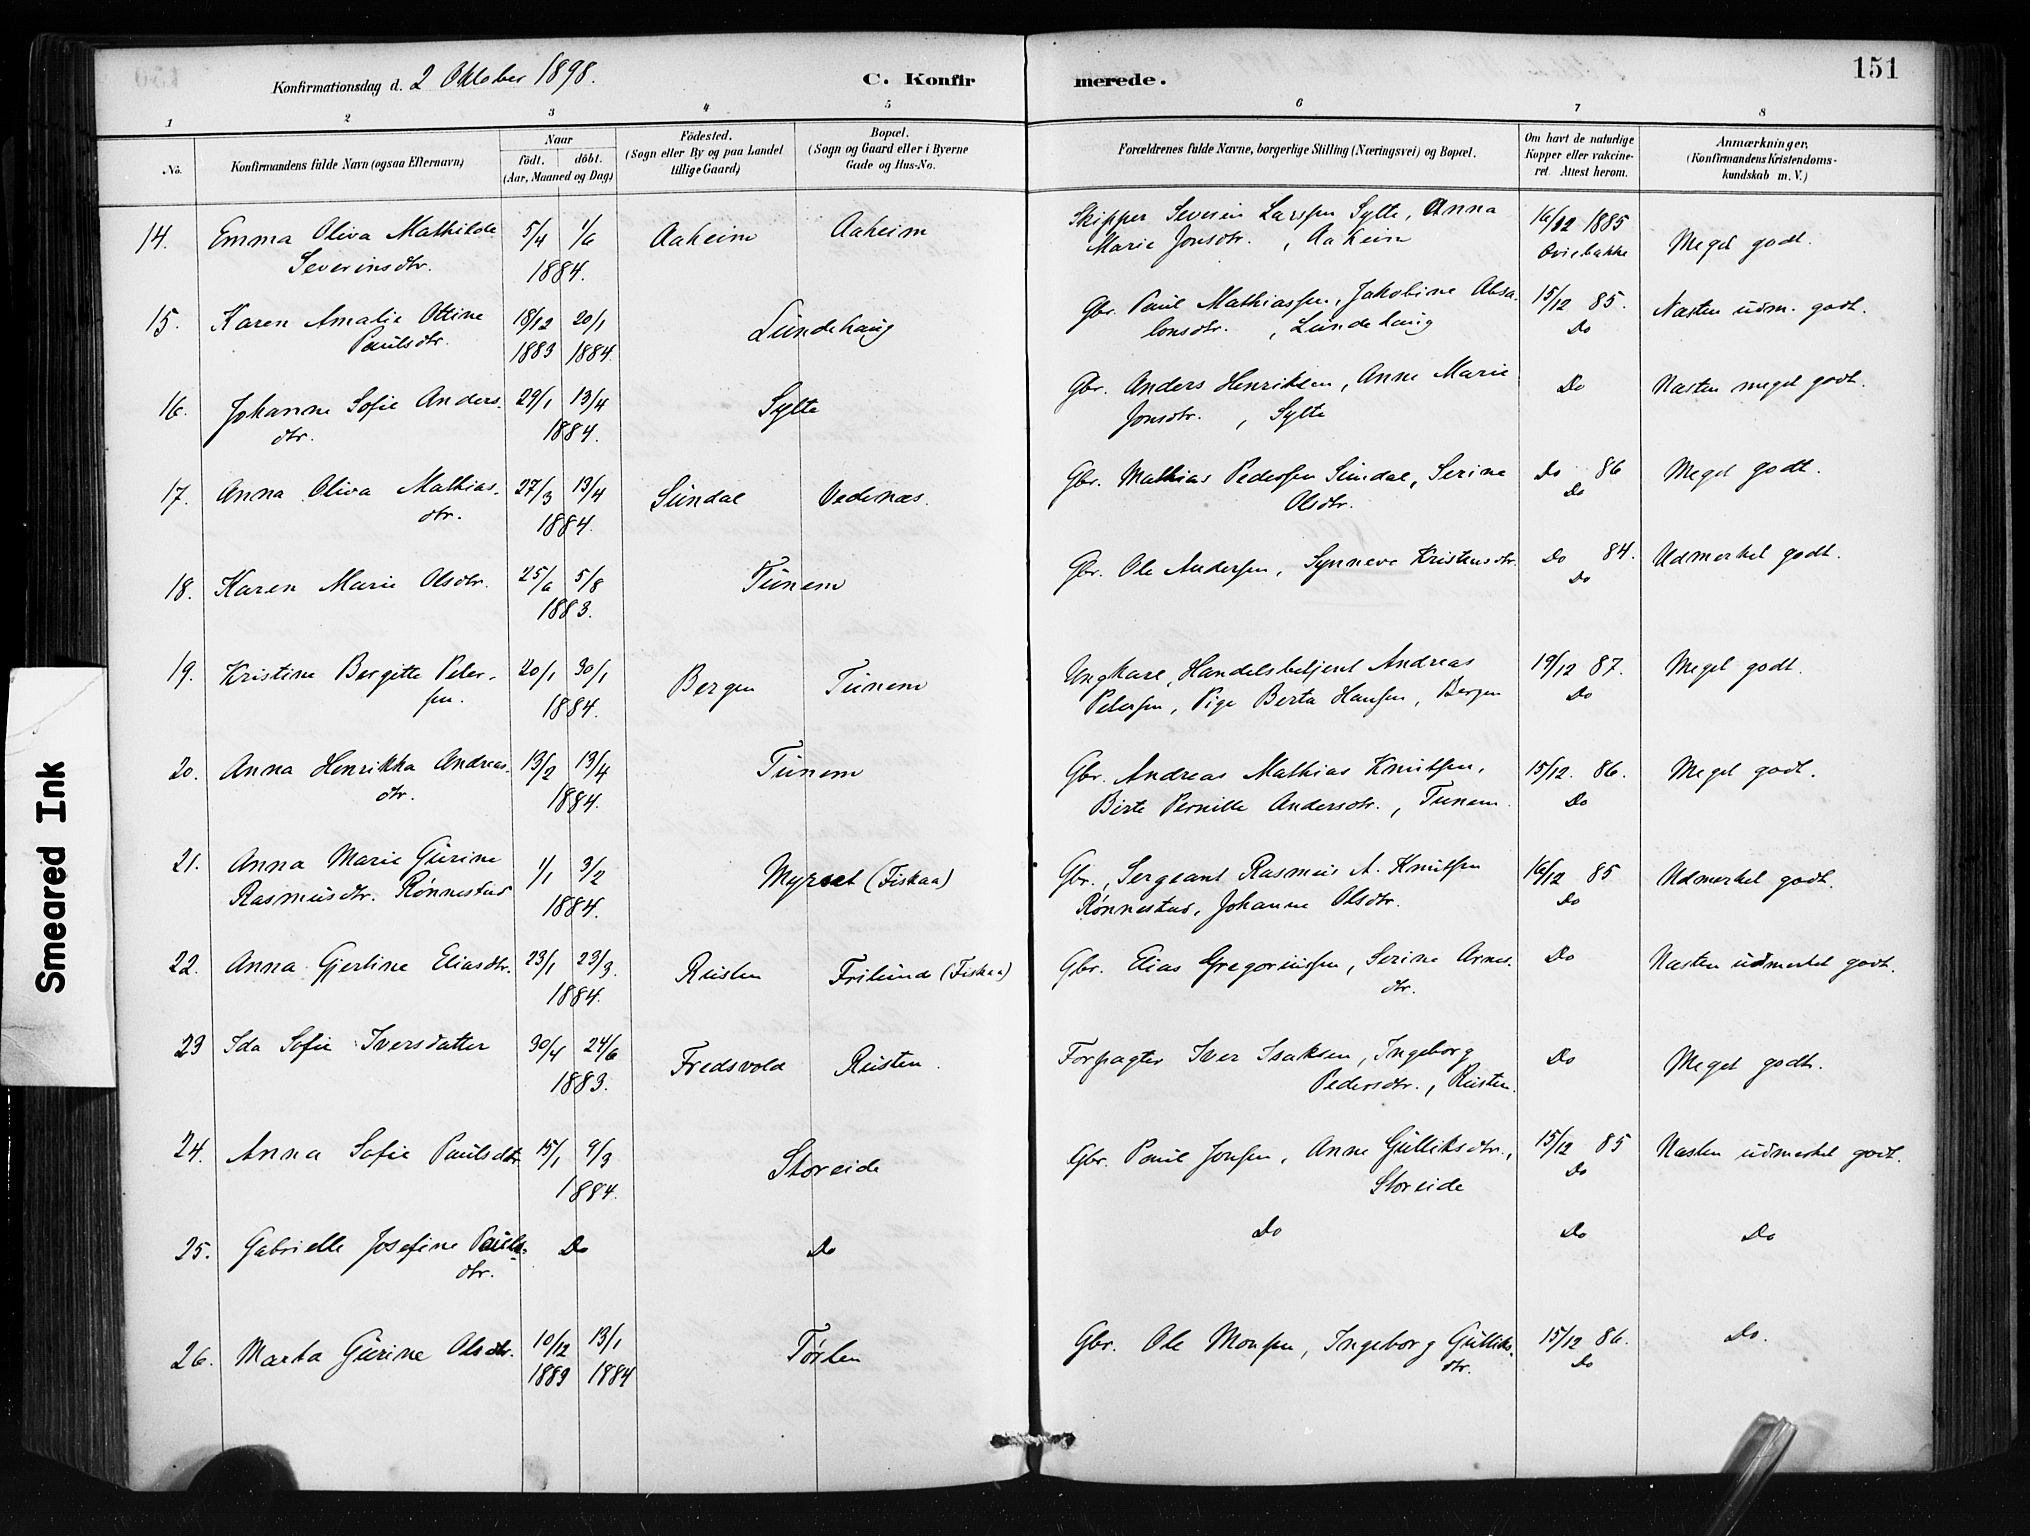 Konfirmationsdag d. 2 Oktober 1898.
C. Konfirmerede.
151
1 2 3 4 5 6 7 8
No.
Konfirmandens fulde Navn (ogsaa Efternavn)
Naar
födt. döbt.
(Aar, Maaned og Dag)
Födested.
(Sogn eller By og paa Landet
tillige Gaard)
Bopæl.
(Sogn og Gaard eller i Byerne
Gade og Hus-No.
Forældrenes fulde Navne, borgerlige Stilling (Næringsvei) og Bopæl.
Om havt de naturlige
Kopper eller vakcine-
ret. Attest herom.
Anmærkninger.
(Konfirmandens Kristendoms-
kundskab m. V.)
14. Emma Oliva Mathilda 5/4 1/6 Aaheim Aaheim Skipper Severin Larssen Sylte, Anna 16/12 1885 Meget godt.
Severinsdtr. 1884. Marie Jonsdtr. , Aaheim Oviebakke
15. Karen Amalie Ottine 18/12 20/1 Lundehaug Gbr. Paul Mathiassen, Jakobine Absa- 15/12 85. Næsten udm. godt.
Paulsdtr. 1883 1884. lonsdtr. , Lundehaug Do
16. Johanne Sofie Anders- 29/1 13/4 Sylte Gbr. Anders Henriksen, Anne Marie Do Næsten meget godt.
dtr. 1884. Jonsdtr. , Sylte
17. Anna Oliva Mathias- 27/3 13/4 Sundal Vedenæs. Gbr. Mathias Pedersen Sundal, Serine Do 86 Meget godt.
dtr. 1884. Olsdtr. Do
18. Karen Marie Olsdtr. 25/6 5/8 Tunem Gbr. Ole Andersen, Synneve Kristensdtr. Do 84. Udmerket godt.
1883. Do
19. Kristine Bergitte Peter- 20/1 30/1 Bergen Tunem Ungkarl, Handelsbetjent Andreas 19/12 87. Meget godt.
sen. 1884. Petersen, Pige Berta Hansen, Bergen Do
20. Anna Henrikka Andreas- 13/2 13/4 Tunem Gbr. Andreas Mathias Knutsen, 15/12. 86. Meget godt.
dtr. 1884. Birte Pernille Andersdtr. , Tunem. Do
21. Anna Marie Gurine 1/1 3/2 Myrset (Fiskaa) Gbr., Sergeant Rasmus A. Knutsen 16/12 85 Udmerket godt.
Rasmusdtr. Rønnestad 1884. Rønnestad, Johanne Olsdtr. Do
22. Anna Gjertine Eliasdtr. 23/1 23/3. Rusten Frilund (Fiskaa) Gbr. Elias Gregoriussen, Serine Arnes- Do Næsten udmerket godt.
1884. dtr.
23 Ida Sofie Iversdatter 30/4 24/6 Fredsvold Rusten. Forpagter Iver Isaksen, Ingeborg Do Meget godt.
1883. Pedersdtr. , Rusten.
24. Anna Sofie Paulsdtr. 15/1 9/3 Storeide Gbr. Paul Jonsen, Anne Gulliksdtr., 15/12 85 Næsten udmerket godt.
1884. Storeide Do
25. Gabrielle Josefine Pauls- Do Do Do Do Do
dtr.
26. Marta Gurine Olsdtr. 10/12 13/1 Tørlen Gbr. Ole Monsen, Ingeborg Gulliks- 15/12 86. Do.
1883 1884 dtr. Do
Smeared Ink